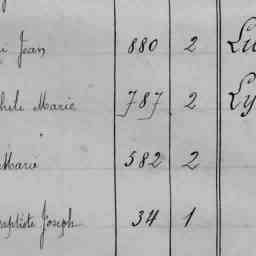 Jean 880 2 Lu
Marie 787 2 Ly
Marie 582 2
Baptiste Joseph 34 1